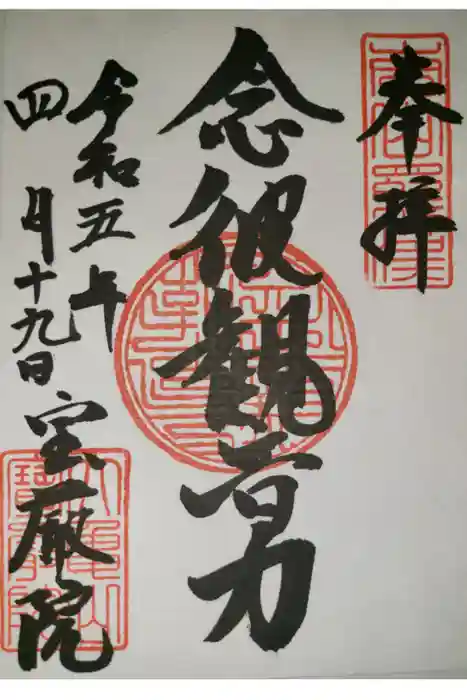 奉拝
念彼観音力
令和五年
四月十九日
宝厳院